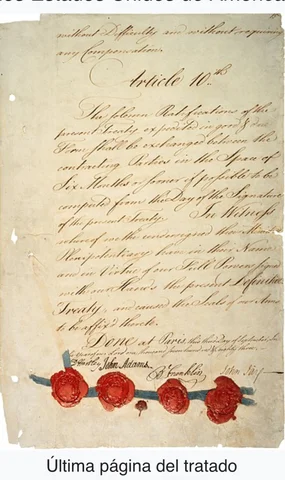 los Estados Unidos de América
without Difficulty and without requiring
any Compensation.
Article 10th
The solemn Ratifications of the
present Treaty expedited in good & due
Form shall be exchanged between the
contracting Parties in the Space of
Six Months or sooner if possible to be
computed from the Day of the Signature
of the present Treaty. In Witness
whereof we the undersigned their Ministers
Plenipotentiary have in their Name
and in Virtue of our Full Powers signed
with our Hands the present Definitive
Treaty, and caused the Seals of our Arms
to be affix'd thereto.
Done at Paris, this third day of September,
in the year of our Lord one thousand seven hundred & eighty three.
D Hartley John Adams B Franklin John Jay
Última página del tratado